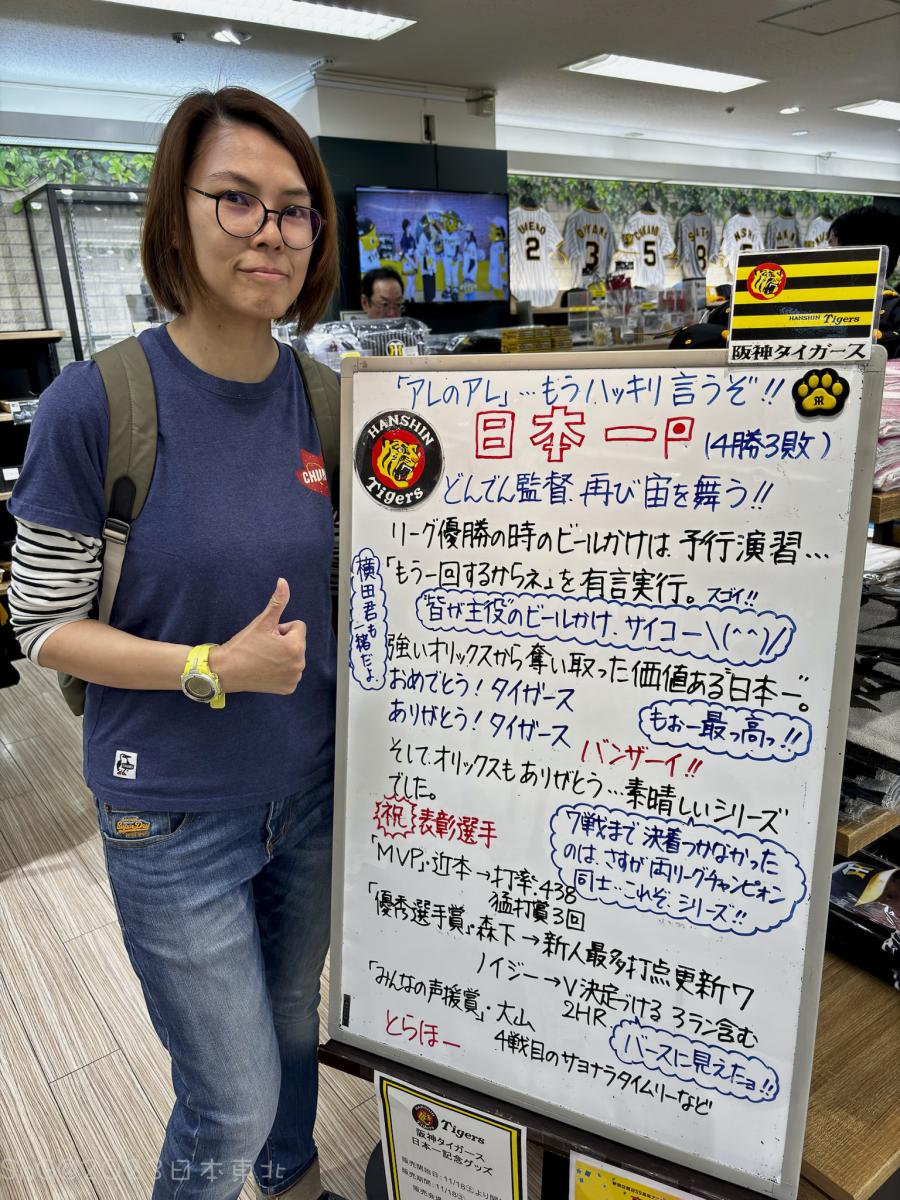 UMENO
2
3
5
8
HANSHIN Tigers
阪神タイガース
「アレのアレ」…もうハッキリ言うぞ!!
HANSHIN
Tigers
日本一
(4勝3敗)
どんでん監督、再び宙を舞う!!
リーグ優勝の時のビールかけは、予行演習…
「もう一回するからネ」を有言実行。スゴイ!!
横田君も一緒だよ
"皆が主役"のビールかけ、サイコー\(^^)/
強いオリックスから奪い取った価値ある"日本一"。
おめでとう!タイガース
ありがとう!タイガース
もぉー最っ高っ!!
バンザーイ!!
そして、オリックスもありがとう…素晴しいシリーズ
でした。
祝 表彰選手
7戦まで決着つかなかった
のは、さすが両リーグチャンピオン
同士…これぞ、シリーズ!!
「MVP」・近本→打率.438
猛打賞3回
「優秀選手賞」・森下→新人最多打点更新7
ノイジー→V決定づける3ラン含む
2HR
「みんなの声援賞」・大山
バースに見えたョ!!
4戦目のサヨナラタイムリーなど
とらほー
CHUM
Superdry
HANSHIN
Tigers
阪神タイガース
日本一記念グッズ
日本東北